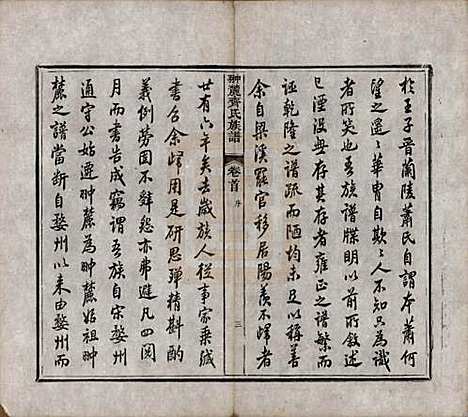 於王子晉蘭陵蕭氏自謂本蕭何
望之遥遥華胄自欺欺人不知為識
者所笑也吾族譜牒明以前所敘述
已湮沒無存其存者雍正之譜繁而
誣乾隆之譜疏而陋均未足以稱善
余自梁溪罷官移居陽羨不歸者
翀麓齊氏族譜
卷首
序
三
廿有六年矣去歲族人從事家乘緘
書召余歸用是研思殫精斟酌
義例勞固不辭怨亦弗避凡四閱
月而書告成竊謂吾族自宋婺州
通守公始遷翀麓為翀麓始祖翀
麓之譜當斷自婺州以來由婺州而